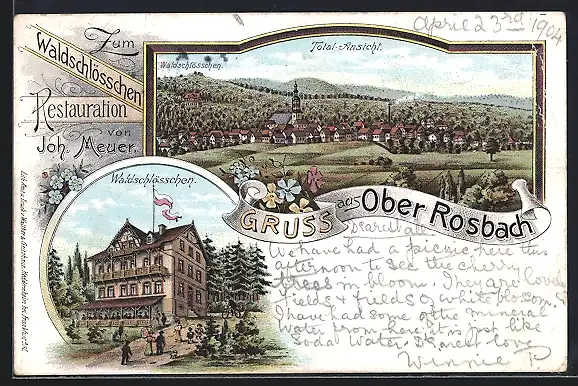 April 23rd 1904
Zum
Waldschlösschen
Restauration
von
Joh. Meuer.
Total-Ansicht.
Waldschlösschen.
Waldschlösschen.
GRUSS aus Ober Rosbach
Dearest all
We have had a picnic here this
afternoon to see the cherry
trees in bloom. They are lovely
fields & fields of white blossom.
I have had some of the mineral
water from here, it is just like
Soda water. Dearest love
Winnie P.